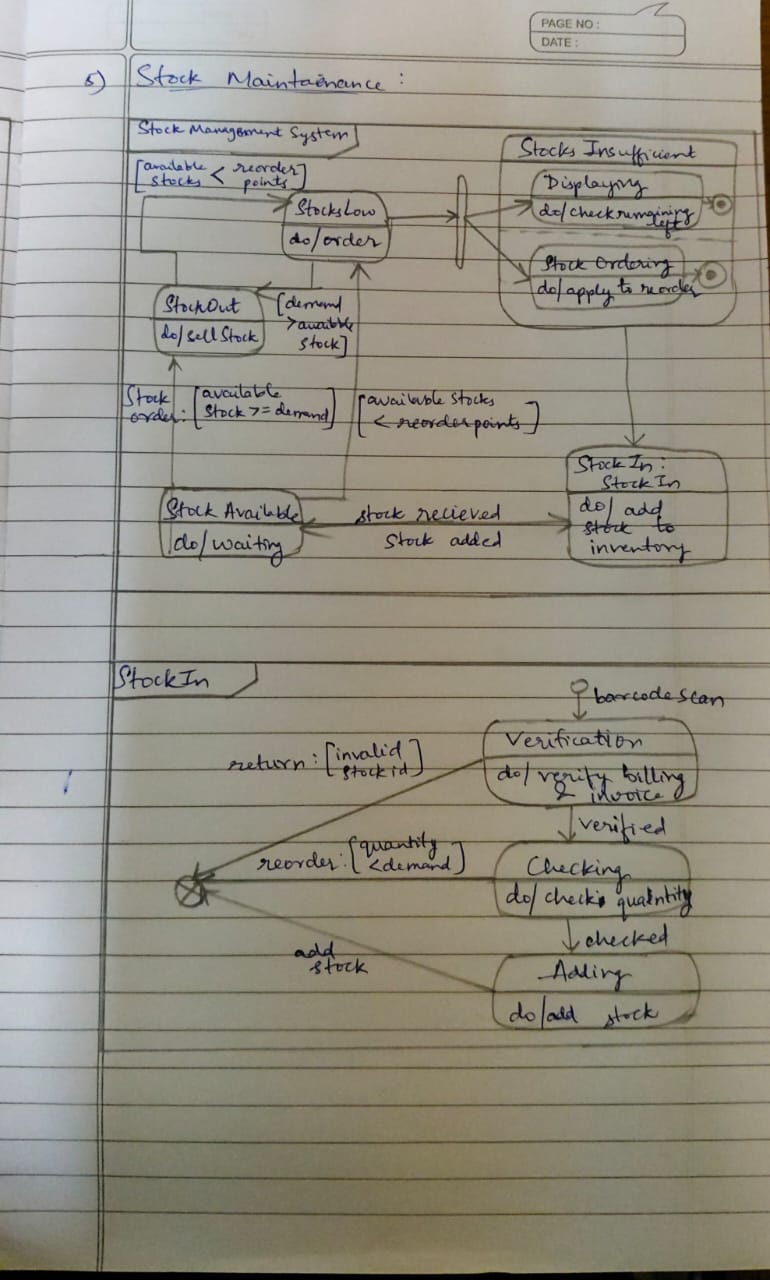 PAGE NO :
DATE :
5) Stock Maintainance :
Stock Management System
[available < reorder
stocks points]
Stocks Insufficient
Displaying
do/check remaining
left
StocksLow
do/order
Stock Ordering
do/apply to reorder
StockOut
do/sellStock
[demand
>available
stock]
Stock
order: [available
stock >= demand]
[available stocks
< reorderpoints]
StockIn:
StockIn
do/ add
stock to
inventory
Stock Available
do/waiting
stock recieved
Stock added
StockIn
barcode scan
Verification
do/ verify billing
& invoice
return: [invalid
stock id]
verified
reorder: [quantity
<demand]
Checking
do/check quantity
checked
add
stock
Adding
do/add stock